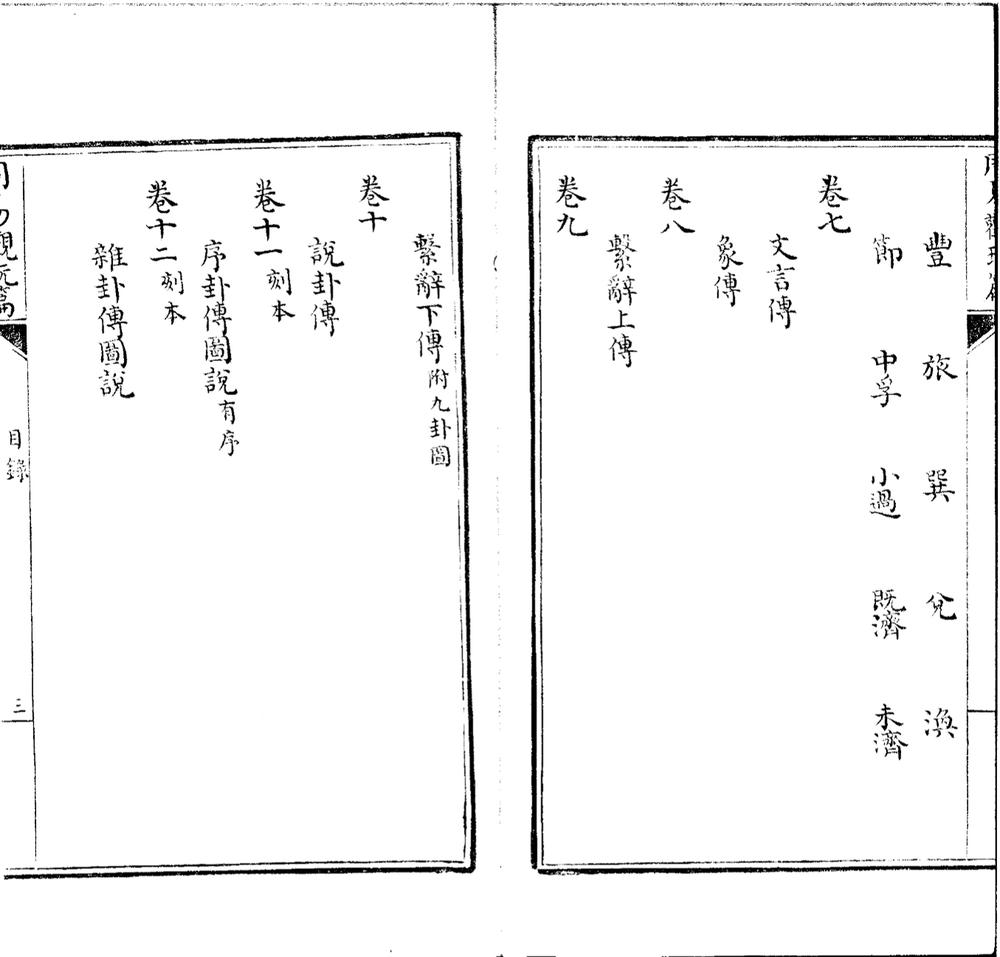 豐 旅 巽 兌 渙
節 中孚 小過 既濟 未濟
卷七
文言傳
象傳
卷八
繫辭上傳
卷九
繫辭下傳附九卦圖
卷十
說卦傳
卷十一刻本
序卦傳圖說有序
卷十二刻本
雜卦傳圖說
目錄
三